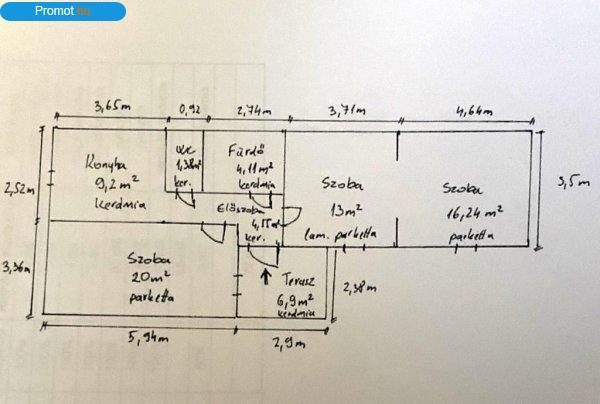 Promot.hu
3,65m 0,92 2,74m 3,71m 4,64m
Konyha
9,2m²
kerámia
WC
1,38m²
ker.
Fürdő
4,11m²
kerámia
Előszoba
4,15m²
ker.
Szoba
13m²
lam. parketta
Szoba
16,24m²
parketta
3,5m
2,52m
3,36m
Szoba
20m²
parketta
Terasz
6,9m²
kerámia
2,38m
5,94m 2,9m